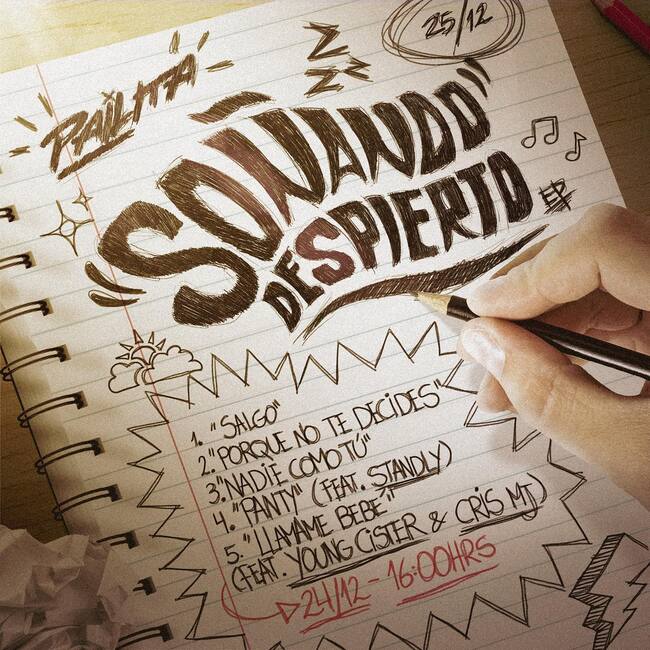 PAILITA
25/12
ZZZ
"SOÑANDO
DESPIERTO"
EP
1. "SALGO"
2. "PORQUE NO TE DECIDES"
3. "NADIE COMO TÚ"
4. "PANTY" (FEAT. STANDLY)
5. "LLAMAME BEBÉ"
(FEAT. YOUNG CISTER & CRIS MJ)
24/12 - 16:00HRS